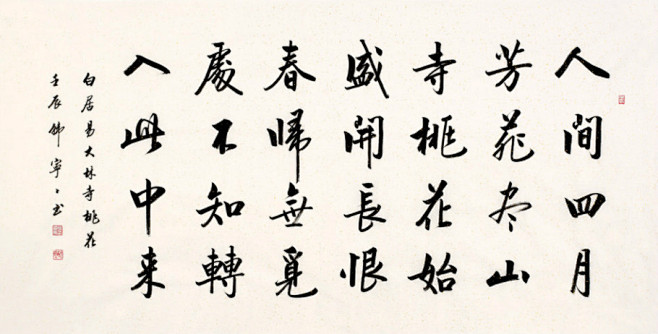 人間四月
芳菲尽山
寺桃花始
盛開長恨
春帰無覓
處不知轉
入此中来
白居易大林寺桃花
壬辰 寧〻书